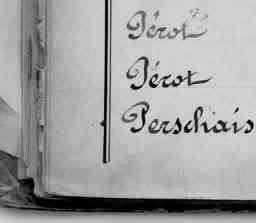 Pérot
Pérot
Perschais